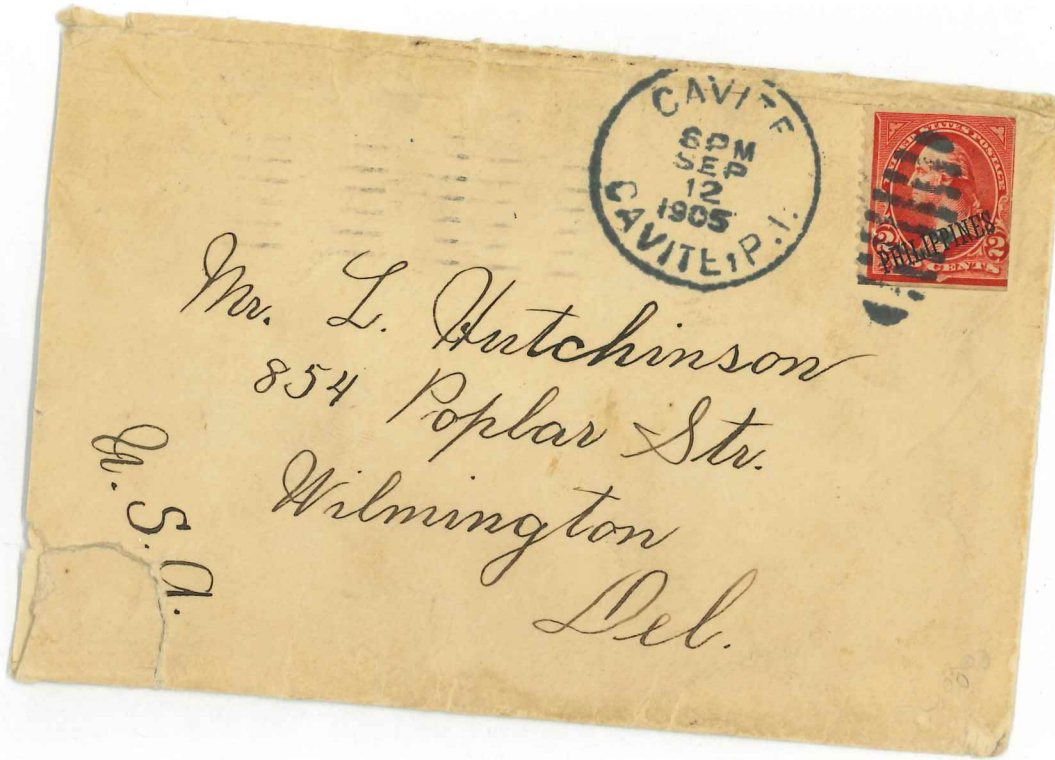 CAVITE
6PM
SEP
12
1905
CAVITE, P.I.
UNITED STATES POSTAGE
PHILIPPINES
2 CENTS 2
Mr. L. Hutchinson
854 Poplar Str.
Wilmington
Del.
U.S.A.